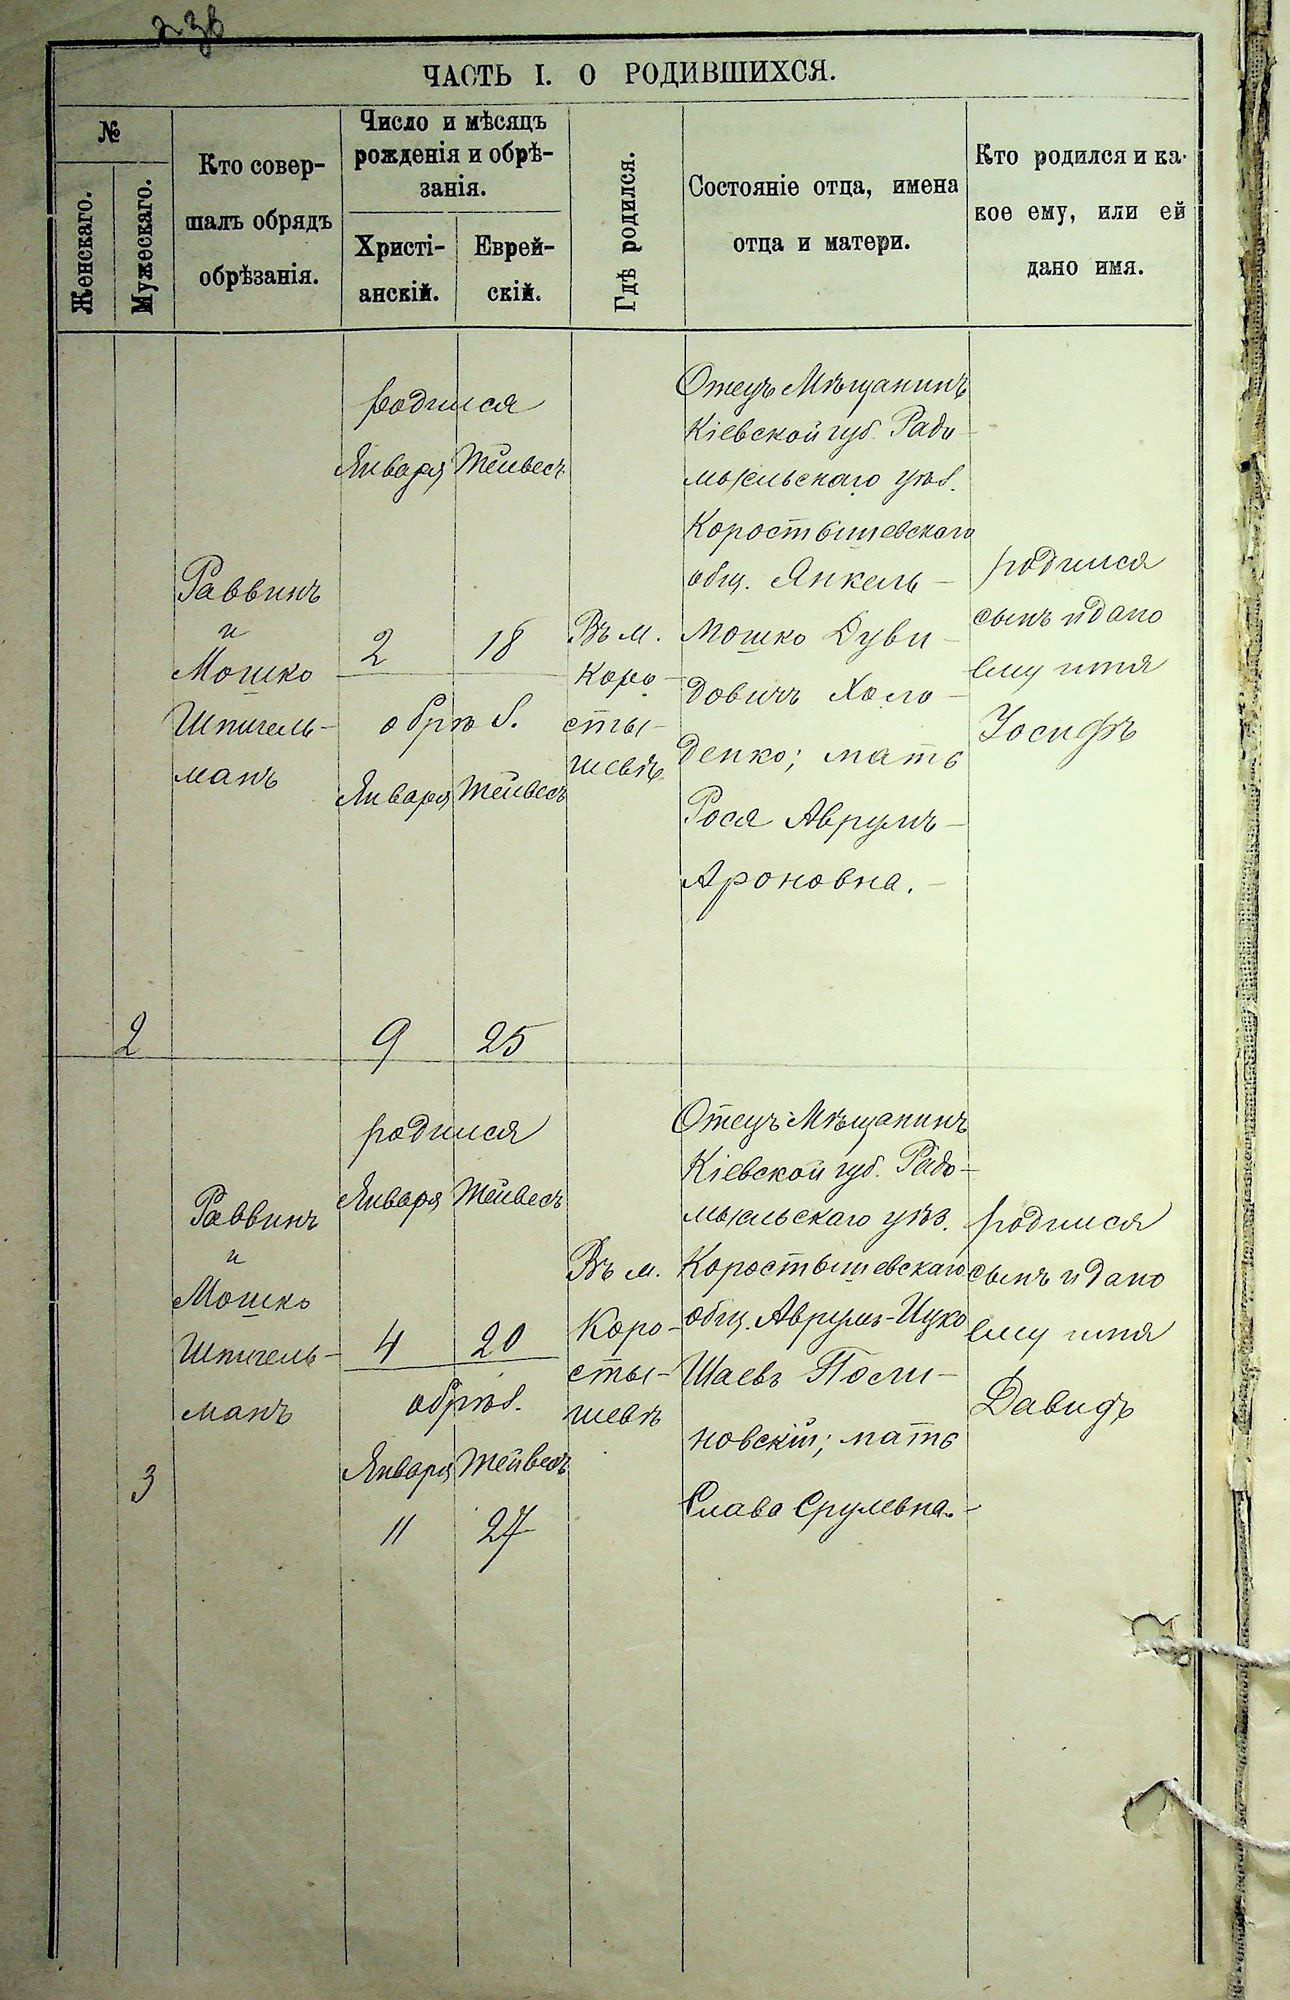 ЧАСТЬ I. О РОДИВШИХСЯ.
№
Женскаго.
Мужескаго.
Кто совер-
шалъ обрядъ
обрѣзанія.
Число и мѣсяцъ
рожденія и обрѣ-
занія.
Христі-
анскій.
Еврей-
скій.
Гдѣ родился.
Состояніе отца, имена
отца и матери.
Кто родился и ка-
кое ему, или ей
дано имя.
2
Раввинъ
и
Мошко
Шпигель-
манъ
родился
Января Тейвесъ
2 18
обрѣз.
Января Тейвесъ
9 25
Въ м.
Коро-
сты-
шевѣ
Отецъ Мѣщанинъ
Кіевской губ. Радо-
мысльскаго уѣз.
Коростышевскаго
общ. Янкель-
Мошко Дуви-
довичъ Холо-
денко; мать
Рося Аврумъ-
Ароновна.-
родился
сынъ и дано
ему имя
Іосифъ
3
Раввинъ
и
Мошко
Шпигель-
манъ
родился
Января Тейвесъ
4 20
обрѣз.
Января Тейвесъ
11 27
Въ м.
Коро-
сты-
шевѣ
Отецъ Мѣщанинъ
Кіевской губ. Радо-
мысльскаго уѣз.
Коростышевскаго
общ. Аврумъ-Ицко
Шаевъ
новскій; мать
Слава Срулевна.-
родился
сынъ и дано
ему имя
Давидъ